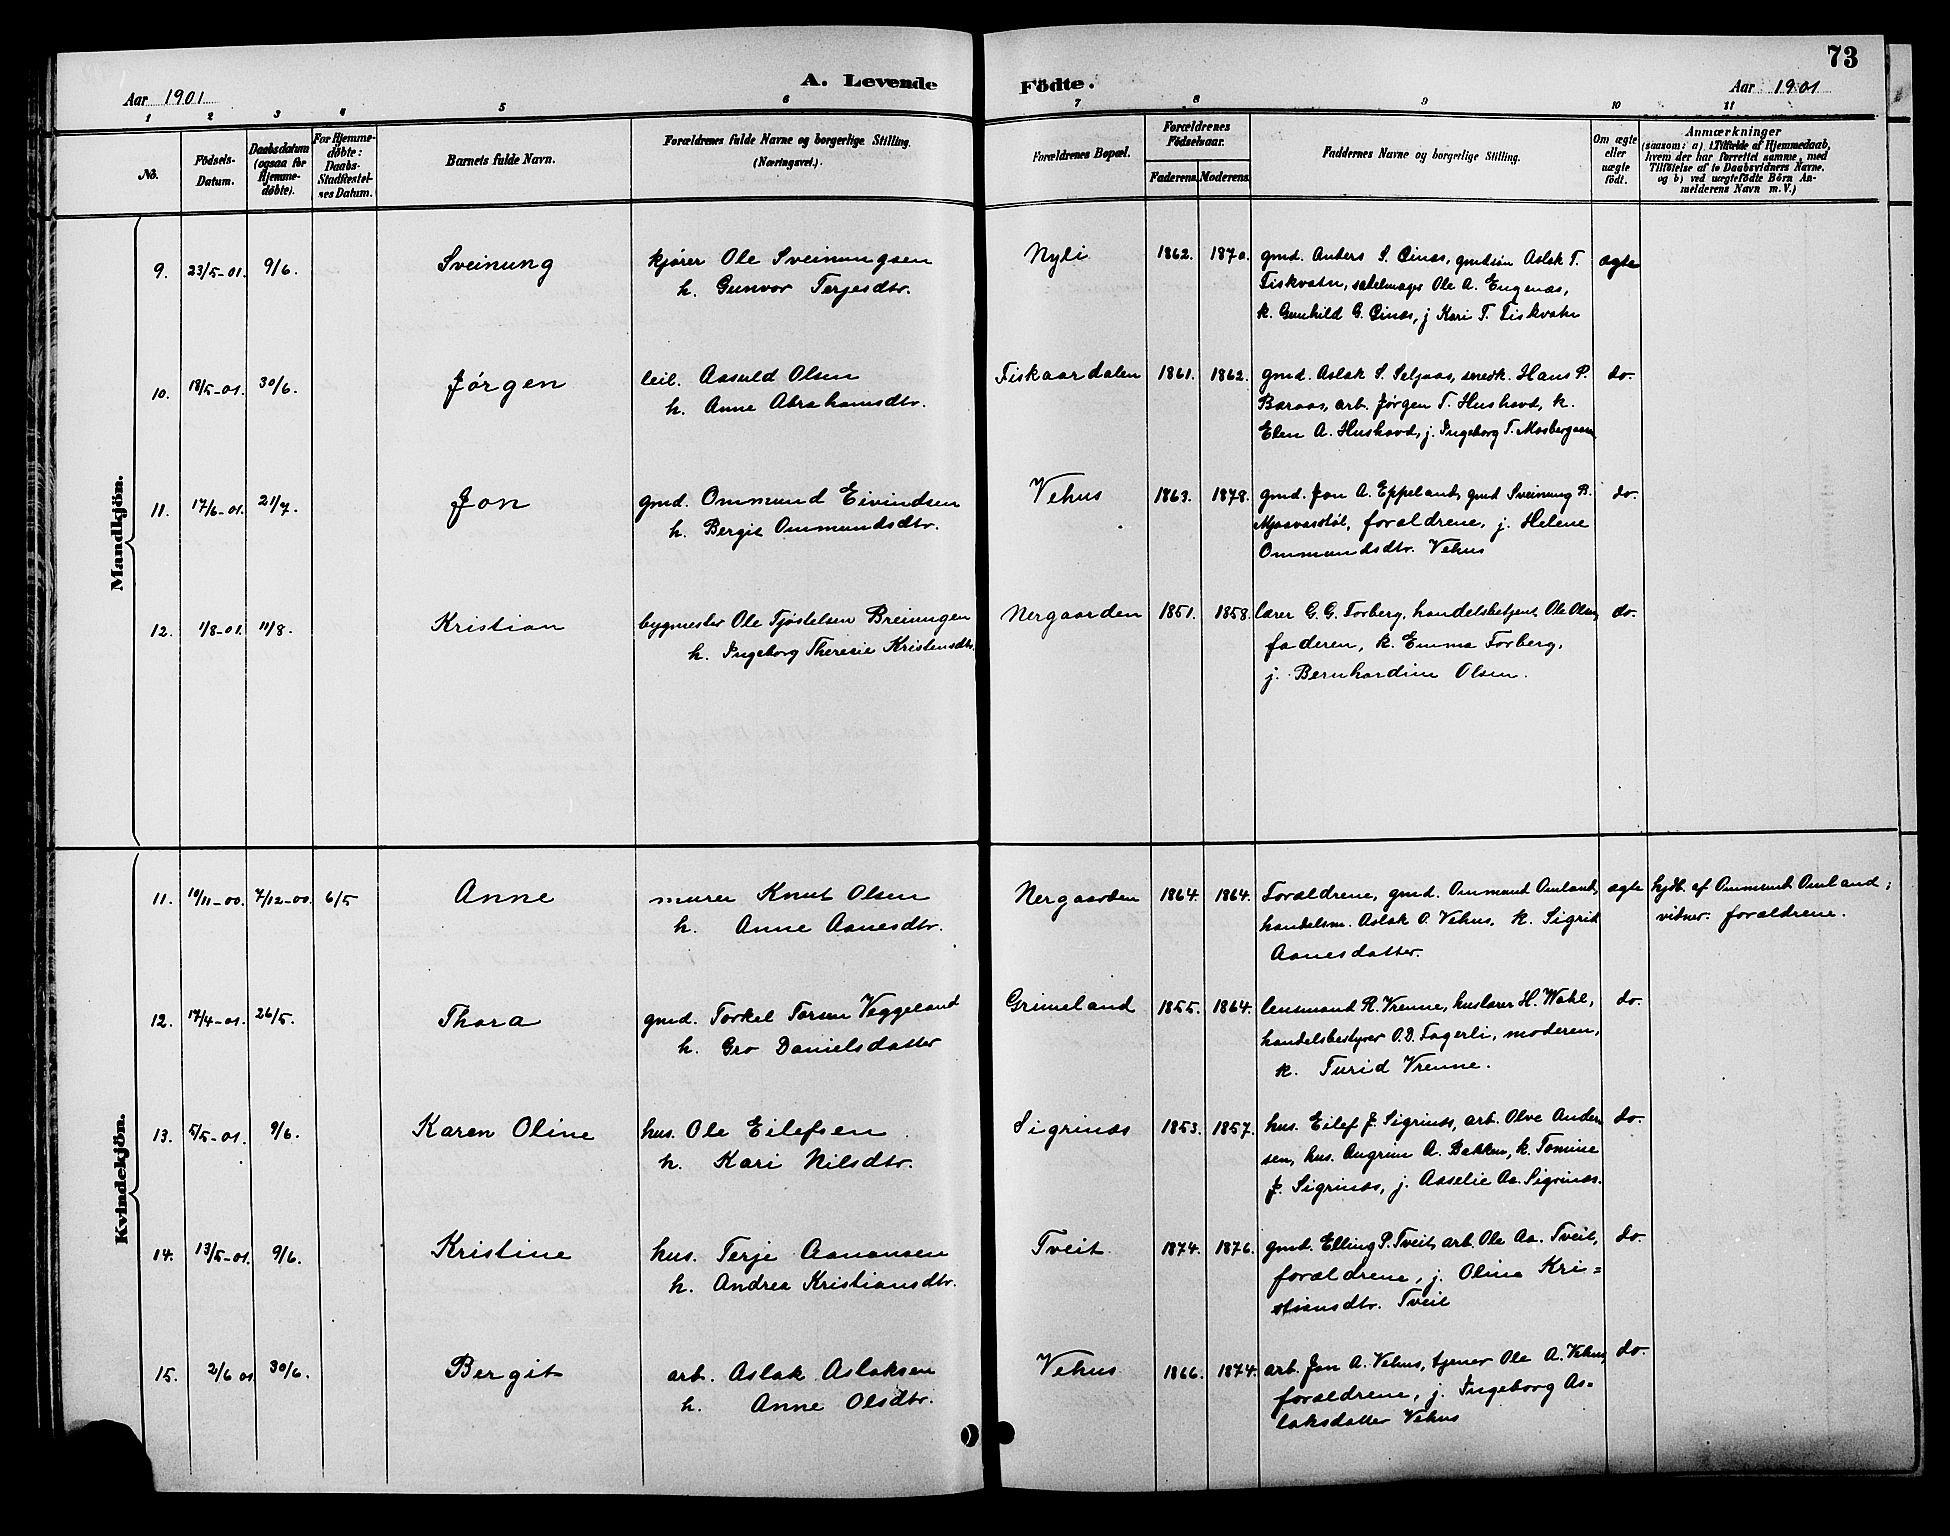 73
A. Levende Födte.
Aar 1901
Aar 1901
1 2 3 4 5 6 7 8 9 10 11
No.
Födsels-
Datum.
Daabsdatum
(ogsaa for
Hjemme-
døbte).
For Hjemme-
døbte:
Daabs-
Stadfæstel-
ses Datum.
Barnets fulde Navn.
Forældrenes fulde Navne og borgerlige Stilling.
(Næringsvei.)
Forældrenes Bopæl.
Forældrenes
Födselsaar.
Faderens. Moderens.
Faddernes Navne og borgerlige Stilling.
Om ægte
eller
uægte
født.
Anmærkninger
(saasom: a) i Tilfælde af Hjemmedaab,
hvem der har forrettet samme, med
Tilføielse af to Daabsvidners Navne,
og b) ved uægtefödte Börn An-
melderens Navn m. V.)
Mandkjön.
9. 23/5-01. 9/6. Sveinung
kjører Ole Sveinungsen
h. Gunvor Terjesdtr.
Nyli 1862. 1870.
gmd. Anders S. Einæs, gmdsøn Aslak T.
Fiskvatn, sadelmager Ole A. Engenæs,
k. Gunhild G. Einæs, j Kari T. Fiskvatn
ægte
10. 18/5-01. 30/6. Jørgen
leil. Aasuld Olsen
h. Anne Abrahamsdtr.
Fiskaardalen 1861. 1862.
gmd. Aslak S. Seljaas, snedk. Hans P.
Baraas, arb. Jørgen T. Hushovd, k.
Elen A. Hushovd, j. Ingeborg T. Mosbergaasen
do.
11. 17/6-01. 21/7. Jon
gmd. Ommund Eivindsen
h. Bergit Ommundsdtr.
Vehus 1863. 1878.
gmd. Jon A. Eppeland, gmd Sveinung B.
Mjaavasstøl, forældrene, j. Helene
Ommundsdtr. Vehus
do.
12. 1/8-01. 11/8. Kristian
bygmester Ole Tjøstelsen Breiungen
h. Ingeborg Theresie Kristensdtr.
Nergaarden 1851. 1858.
lærer G. G. Torberg, handelsbetjent Ole Olsen,
faderen, k. Emma Torberg,
j. Bernhardine Olsen.
do.
Kvindekjön.
11. 10/11-00. 7/12-00. 6/5 Anne
murer Knut Olsen
h. Anne Aanesdtr.
Nergaarden 1864. 1864.
Forældrene, gmd. Ommund Omland,
handelsm. Aslak O. Vehus, k. Sigrid
Aanesdatter.
ægte
hjdt. af Ommund Omland;
vidner: forældrene.
12. 17/4-01. 26/5. Thora
gmd. Torkel Torsen Veggeland
h. Gro Danielsdatter
Grimeland 1855. 1864.
lensmand R. Vrenne, huslærer H. Wahl,
handelsbestyrer O. D. Fagerli, moderen,
k. Turid Vrenne.
do.
13. 5/5-01. 9/6. Karen Oline
hus. Ole Eilefsen
h. Kari Nilsdtr.
Sigrinæs 1853. 1857.
hus. Eilef J. Sigrinæs, arb. Olve Ander
sen, hus. Angrim A. Bakken, k. Tomine
J. Sigrinæs, j. Aaselie Aa. Sigrinæs.
do.
14. 13/5-01. 9/6. Kristine
hus. Terje Aanansen
h. Andrea Kristiansdtr.
Tveit 1874. 1876.
gmd. Elling P. Tveit, arb. Ole Aa. Tveit,
forældrene, j. Oline Kri=
stiansdtr. Tveit
do.
15. 2/6 01 30/6. Bergit
arb. Aslak Aslaksen
h. Anne Olsdtr.
Vehus 1866. 1874.
arb. Jon A. Vehus, tjener Ole A. Vehus,
forældrene, j. Ingeborg As-
laksdatter Vehus
do.